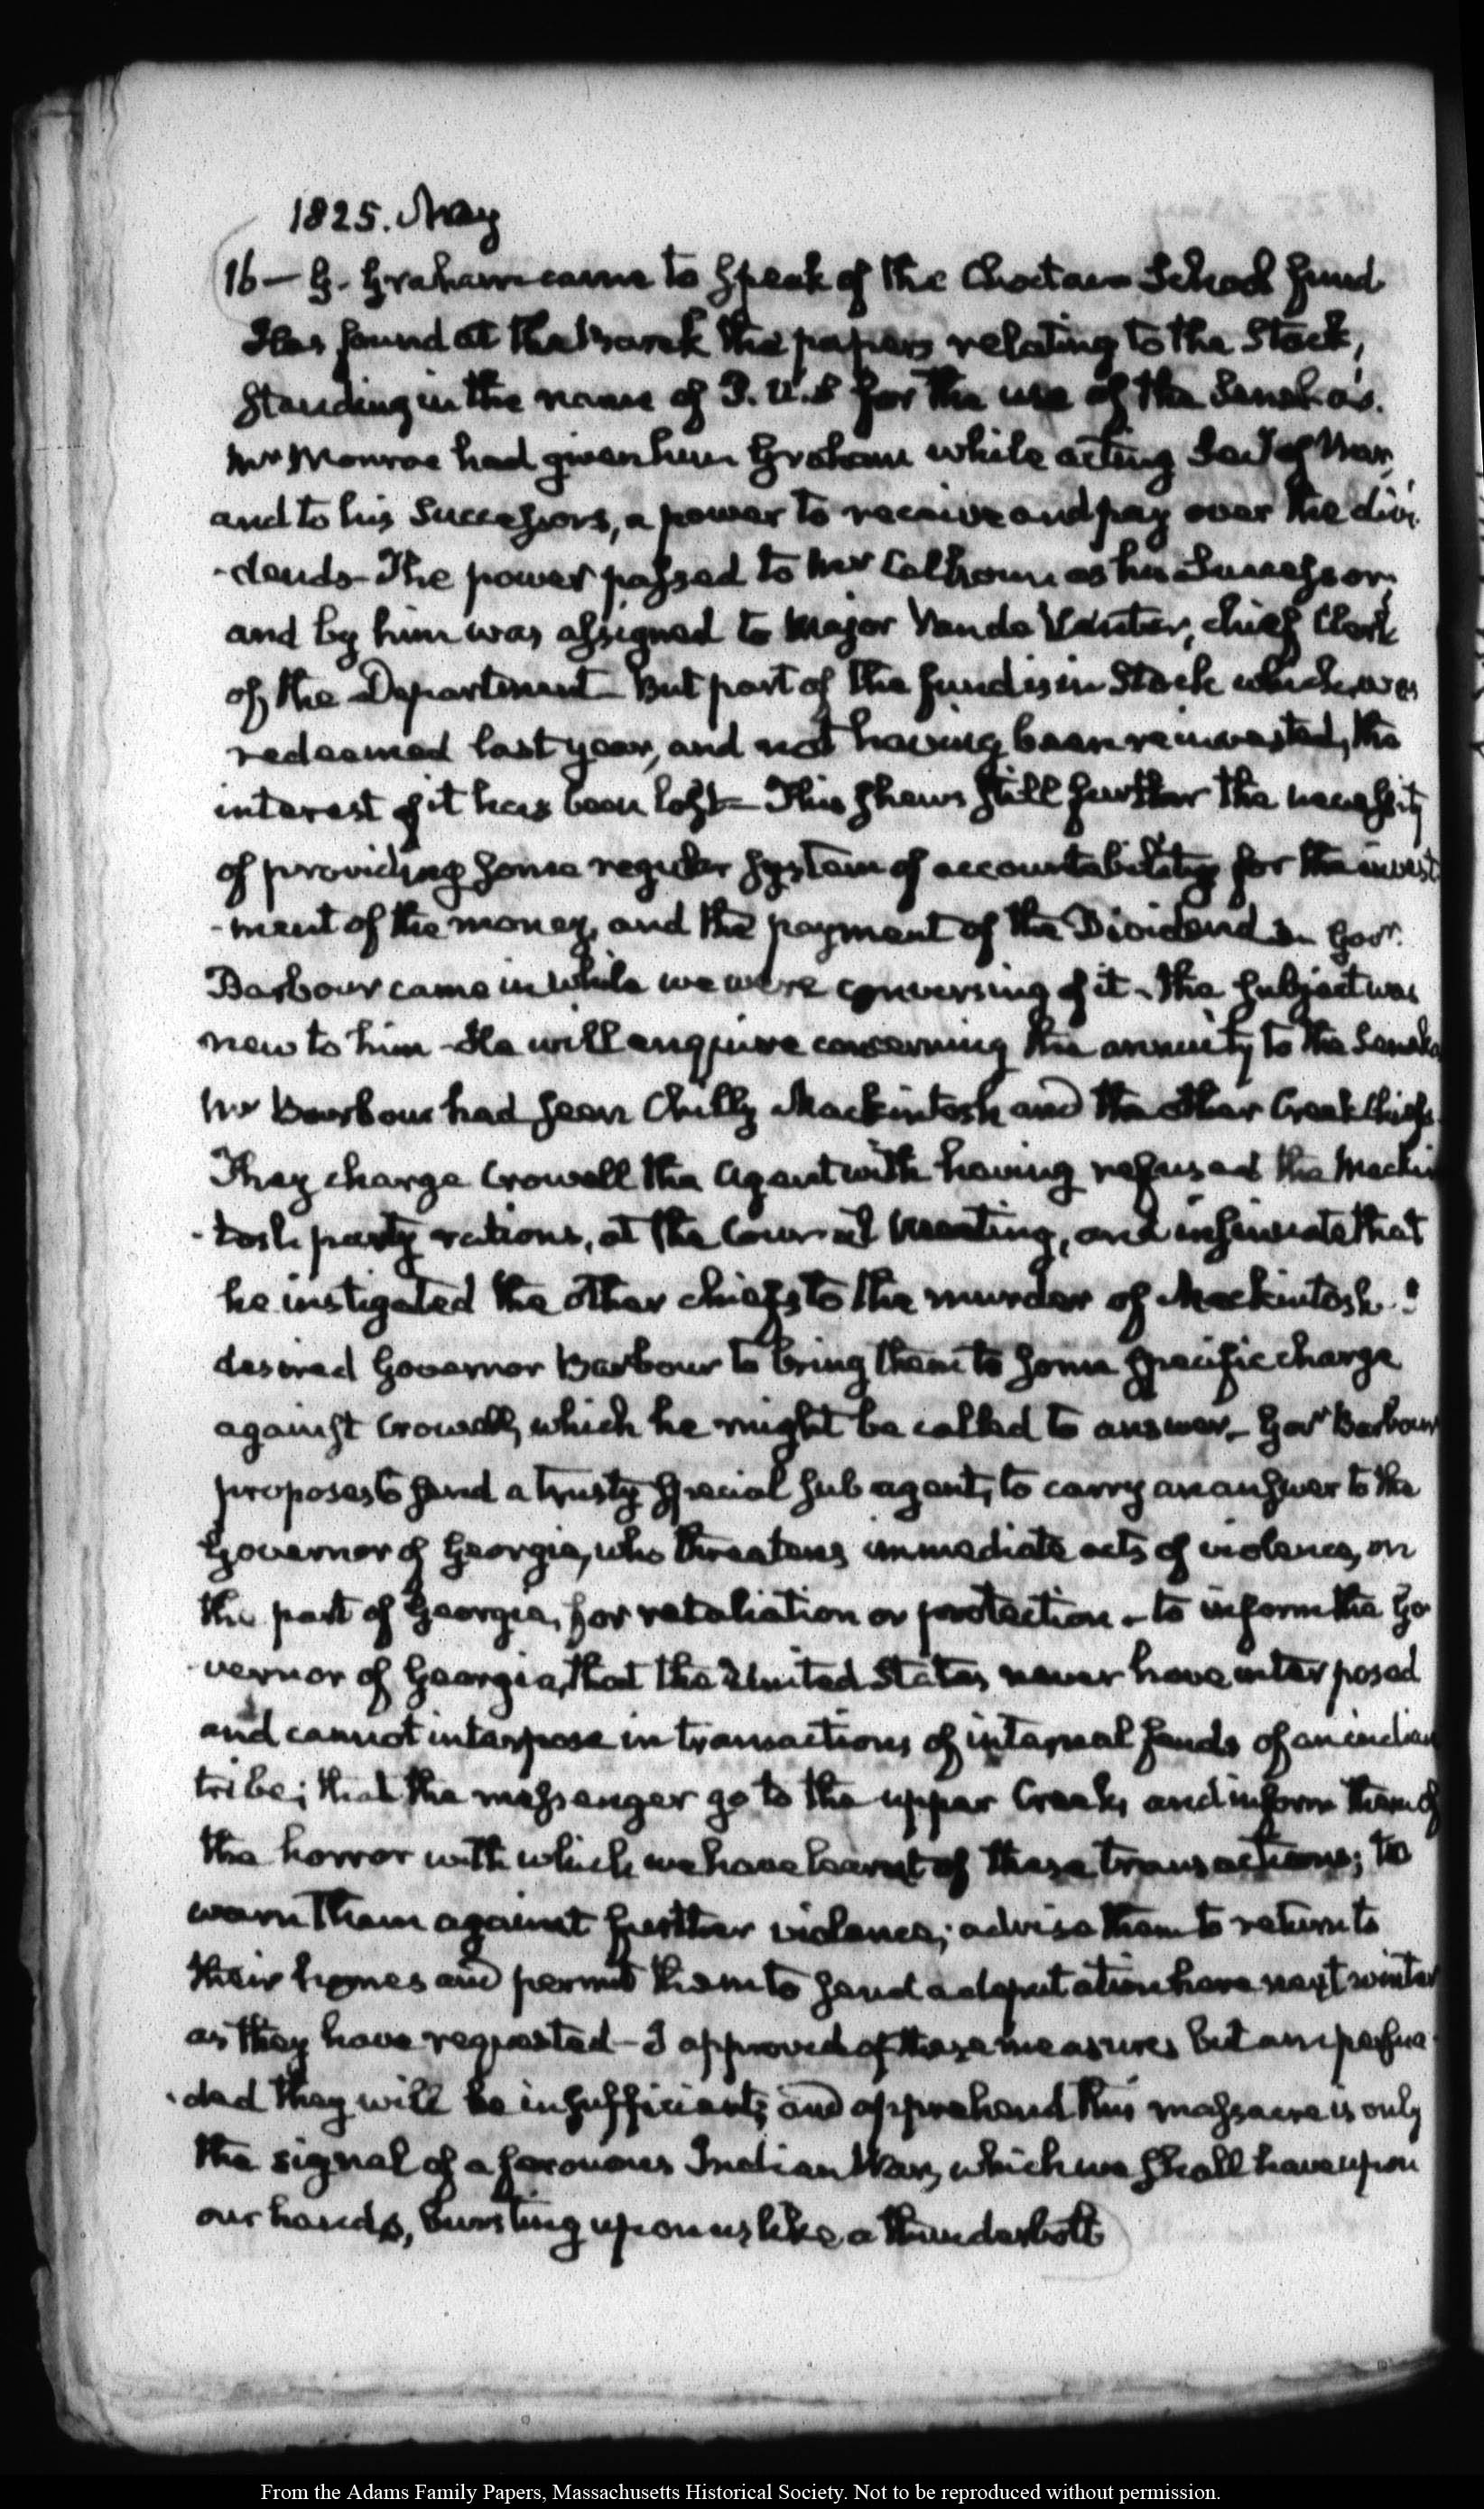 1825. May
16 — G. Graham came to speak of the Choctaw School fund
Has found at the Bank the papers relating to the Stock,
standing in the name of P. U.S for the use of the Senekas.
Mr Monroe had given him Graham while acting Secy of War,
and to his Successors, a power to receive and pay over the divi
-dends— The power passed to Mr Calhoun as his Successor,
and by him was assigned to Major Vande Venter, chief Clerk
of the Department— But part of the fund is in Stock which was
redeemed last year, and not having been reinvested, the
interest of it has been lost— This shews still further the necessity
of providing some regular system of accountability for the invest
-ment of the money, and the payment of the Dividends— Govr.
Barbour came in while we were conversing of it— The subject was
new to him— He will enquire concerning the annuity to the Seneka
Mr Barbour had seen Chilly Mackintosh and the other Creek Chiefs.
They charge Crowell the Agent with having refused the Mackin
-tosh party rations, at the Council Meeting, and insinuate that
he instigated the other chiefs to the murder of Mackintosh. I
desired Governor Barbour to bring them to some specific charge
against Crowell, which he might be called to answer— Govr Barbour
proposes to send a trusty special sub agent, to carry an answer to the
Governor of Georgia, who threatens immediate acts of violence, on
the part of Georgia, for retaliation or protection— to inform the Go
-vernor of Georgia, that the United States never have interposed
and cannot interpose in transactions of internal feuds of an indian
tribe; that the messenger go to the upper Creeks and inform them of
the horror with which we have learnt of these transactions; to
warn them against further violence; advise them to return to
their homes and permit them to send a deputation here next winter
as they have requested— I approved of these measures but am persua
-ded they will be insufficient; and apprehend this massacre is only
the signal of a ferocious Indian War, which we shall have upon
our hands, bursting upon us like a thunderbolt
From the Adams Family Papers, Massachusetts Historical Society. Not to be reproduced without permission.